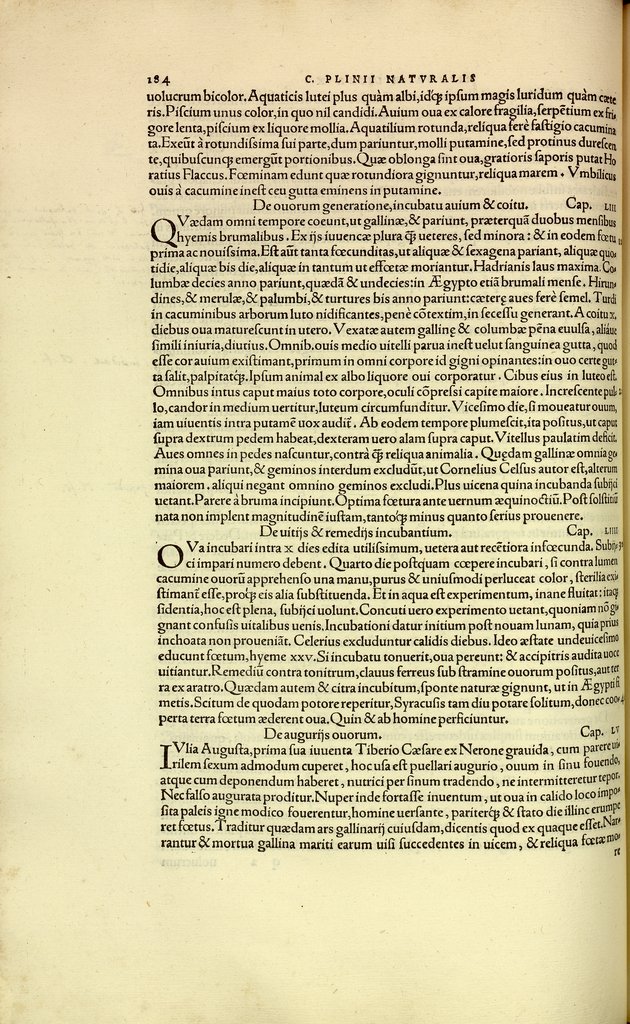 184 C. PLINII NATVRALIS
uolucrum bicolor. Aquaticis lutei plus quàm albi, idq; ipsum magis luridum quàm cæte
ris. Piscium unus color, in quo nil candidi. Auium oua ex calore fragilia, serpētium ex fri
gore lenta, piscium ex liquore mollia. Aquatilium rotunda, reliqua ferè fastigio cacumina
ta. Exeūt à rotundissima sui parte, dum pariuntur, molli putamine, sed protinus durescen
te, quibuscunq; emergūt portionibus. Quæ oblonga sint oua, gratioris saporis putat Ho
ratius Flaccus. Fœminam edunt quæ rotundiora gignuntur, reliqua marem. Vmbilicus
ouis à cacumine inest ceu gutta eminens in putamine.
De ouorum generatione, incubatu auium & coitu. Cap. LIII
QVædam omni tempore coeunt, ut gallinæ, & pariunt, præterquā duobus mensibus
hyemis brumalibus. Ex ijs iuuencæ plura q̄; ueteres, sed minora: & in eodem fœtu
prima ac nouissima. Est aūt tanta fœcunditas, ut aliquæ & sexagena pariant, aliquæ quo
tidie, aliquæ bis die, aliquæ in tantum ut effœtæ moriantur. Hadrianis laus maxima. Co
lumbæ decies anno pariunt, quædā & undecies: in Ægypto etiā brumali mense. Hirun
dines, & merulæ, & palumbi, & turtures bis anno pariunt: cæteræ aues ferè semel. Turdi
in cacuminibus arborum luto nidificantes, penè cōtextim, in secessu generant. A coitu x.
diebus oua maturescunt in utero. Vexatæ autem gallinę & columbæ pēna euulsa, aliáue
simili iniuria, diutius. Omnib. ouis medio uitelli parua inest uelut sanguinea gutta, quod
esse cor auium existimant, primum in omni corpore id gigni opinantes: in ouo certe gut
ta salit, palpitatq;. Ipsum animal ex albo liquore oui corporatur. Cibus eius in luteo est.
Omnibus intus caput maius toto corpore, oculi cōpressi capite maiore. Increscente pul
lo, candor in medium uertitur, luteum circumfunditur. Vicesimo die, si moueatur ouum,
iam uiuentis intra putamē uox audit̄. Ab eodem tempore plumescit, ita positus, ut caput
supra dextrum pedem habeat, dexteram uero alam supra caput. Vitellus paulatim deficit.
Aues omnes in pedes nascuntur, contrà q̄; reliqua animalia. Quędam gallinæ omnia ge
mina oua pariunt, & geminos interdum excludūt, ut Cornelius Celsus autor est, alterum
maiorem. aliqui negant omnino geminos excludi. Plus uicena quina incubanda subijci
uetant. Parere à bruma incipiunt. Optima fœtura ante uernum æquinoctiū. Post solstitiū
nata non implent magnitudinē iustam, tantoq; minus quanto serius prouenere.
De uitijs & remedijs incubantium. Cap. LIIII
OVa incubari intra x dies edita utilissimum, uetera aut recētiora infœcunda. Subij
ci impari numero debent. Quarto die postquam cœpere incubari, si contra lumen
cacumine ouorū apprehenso una manu, purus & uniusmodi perluceat color, sterilia exi
stimant̄ esse, proq; eis alia substituenda. Et in aqua est experimentum, inane fluitat: itaq;
sidentia, hoc est plena, subijci uolunt. Concuti uero experimento uetant, quoniam nō gi
gnant confusis uitalibus uenis. Incubationi datur initium post nouam lunam, quia prius
inchoata non proueniāt. Celerius excluduntur calidis diebus. Ideo æstate undeuicesimo
educunt fœtum, hyeme xxv. Si incubatu tonuerit, oua pereunt: & accipitris audita uoce
uitiantur. Remediū contra tonitrum, clauus ferreus sub stramine ouorum positus, aut ter
ra ex aratro. Quædam autem & citra incubitum, sponte naturæ gignunt, ut in Ægypti fi
metis. Scitum de quodam potore reperitur, Syracusis tam diu potare solitum, donec coo
perta terra fœtum æderent oua. Quin & ab homine perficiuntur.
De augurijs ouorum. Cap. LV
IVlia Augusta, prima sua iuuenta Tiberio Cæsare ex Nerone grauida, cum parere ui
rilem sexum admodum cuperet, hoc usa est puellari augurio, ouum in sinu fouendo,
atque cum deponendum haberet, nutrici per sinum tradendo, ne intermitteretur tepor.
Nec falso augurata proditur. Nuper inde fortasse inuentum, ut oua in calido loco impo
sita paleis igne modico fouerentur, homine uersante, pariterq; & stato die illinc erumpe
ret fœtus. Traditur quædam ars gallinarij cuiusdam, dicentis quod ex quaque esset. Nar
rantur & mortua gallina mariti earum uisi succedentes in uicem, & reliqua fœtæ mo
re